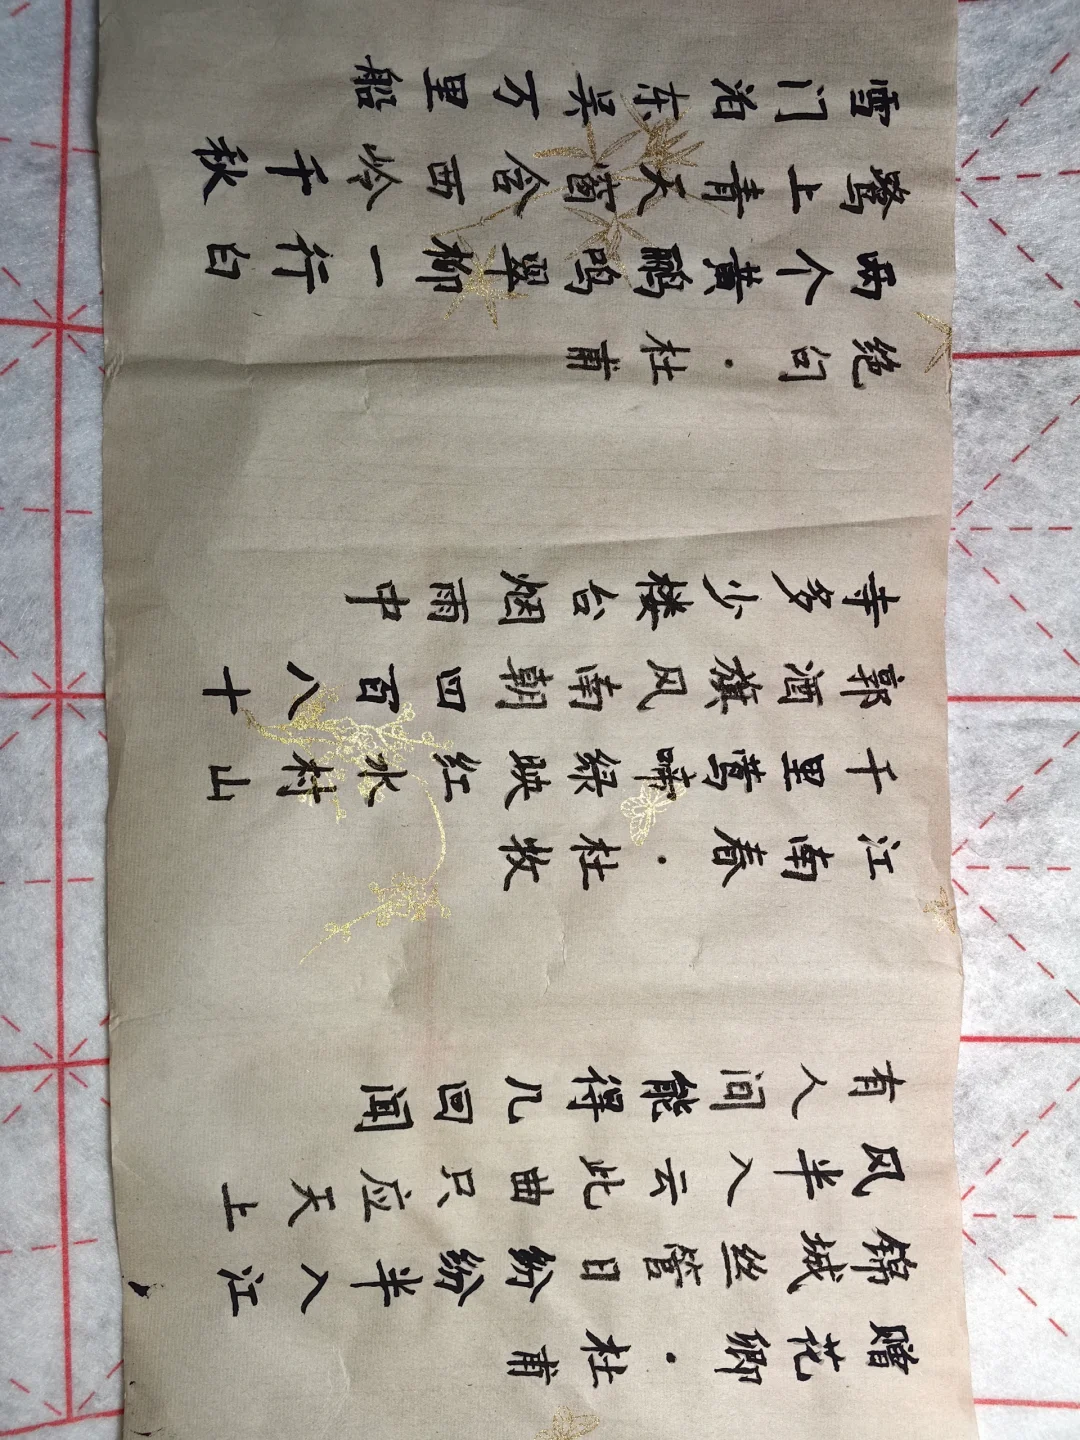 赠花卿·杜甫
锦城丝管日纷纷半入江
风半入云此曲只应天上
有人间能得几回闻
江南春·杜牧
千里莺啼绿映红水村山
郭酒旗风南朝四百八十
寺多少楼台烟雨中
绝句·杜甫
两个黄鹂鸣翠柳一行白
鹭上青天窗含西岭千秋
雪门泊东吴万里船